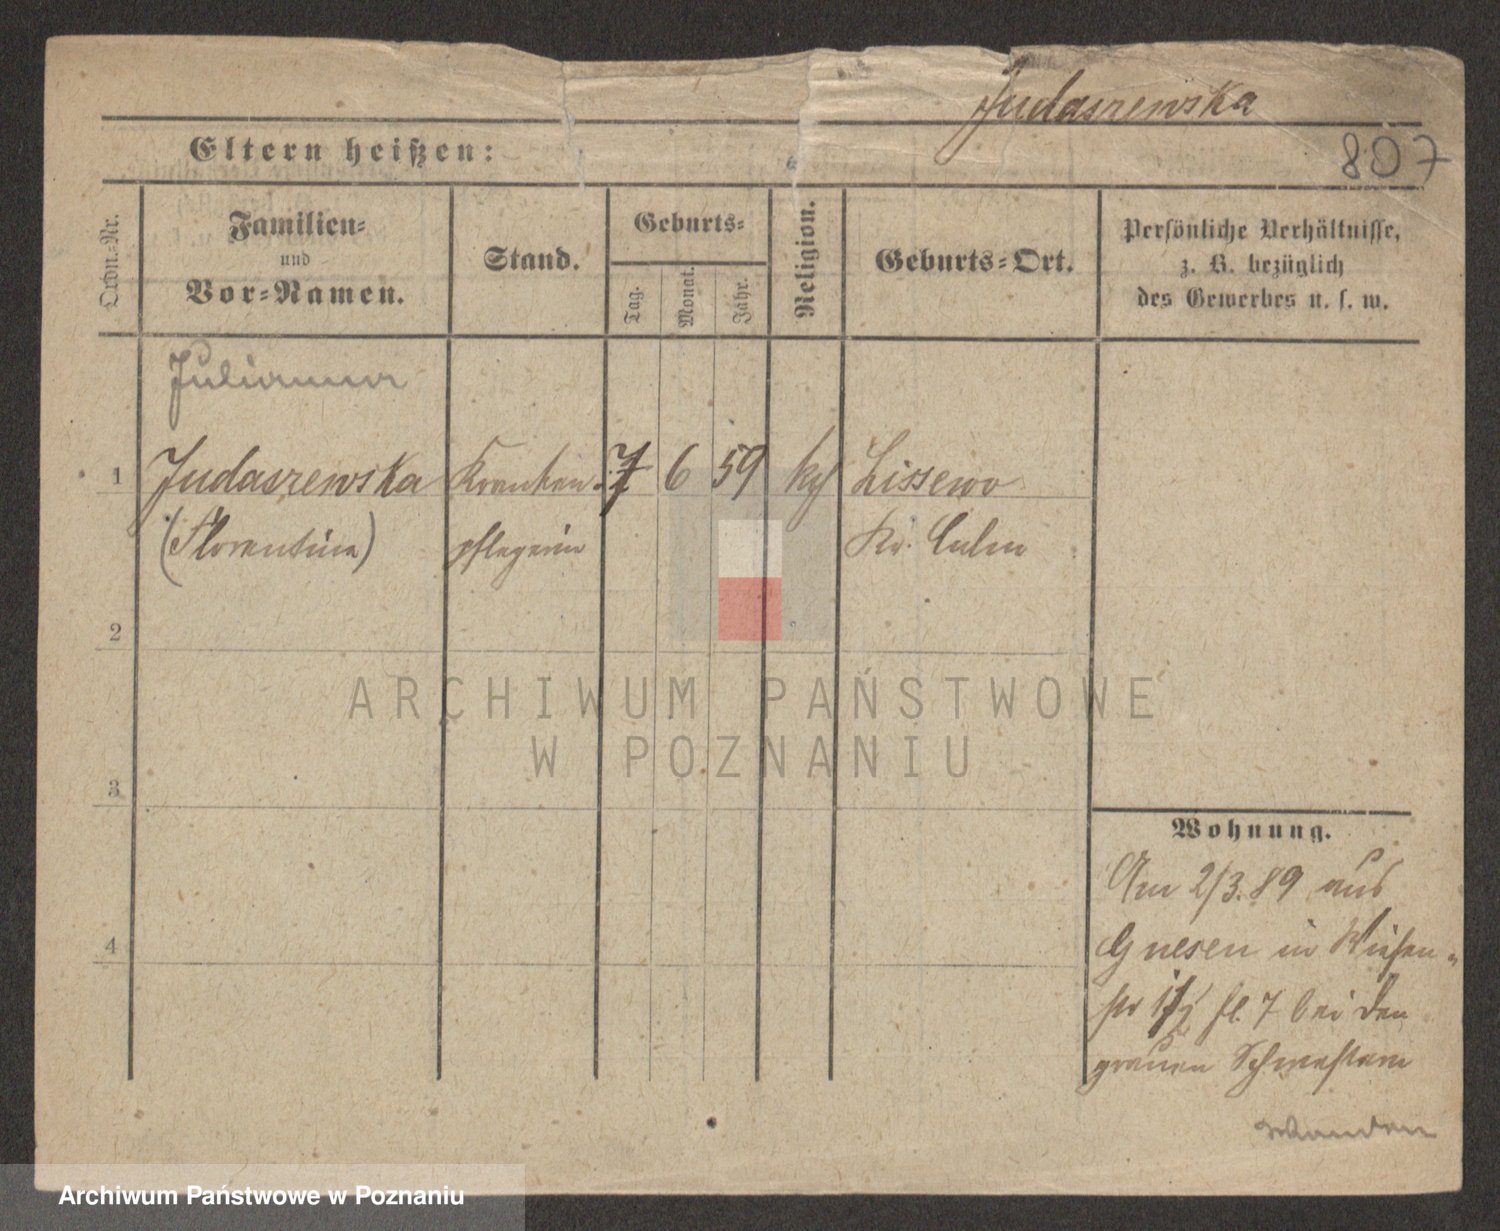 Judaszewska
807
Eltern heißen:
Ordn.-Nr.
Familien-
und
Vor-Namen.
Stand.
Geburts-
Tag.
Monat.
Jahr.
Religion.
Geburts-Ort.
Persönliche Verhältnisse,
z. B. bezüglich
des Gewerbes u. s. w.
Julianna
1 Judaszewska Kranken- 7 6 59 kth Lissewo
(Florentina) pflegerin Kr. Culm
2
3
4
Wohnung.
Am 2/3.89 aus
Gnesen in Wiesen-
str 7 bei den
grauen Schwestern
ARCHIWUM PAŃSTWOWE
W POZNANIU
Archiwum Państwowe w Poznaniu